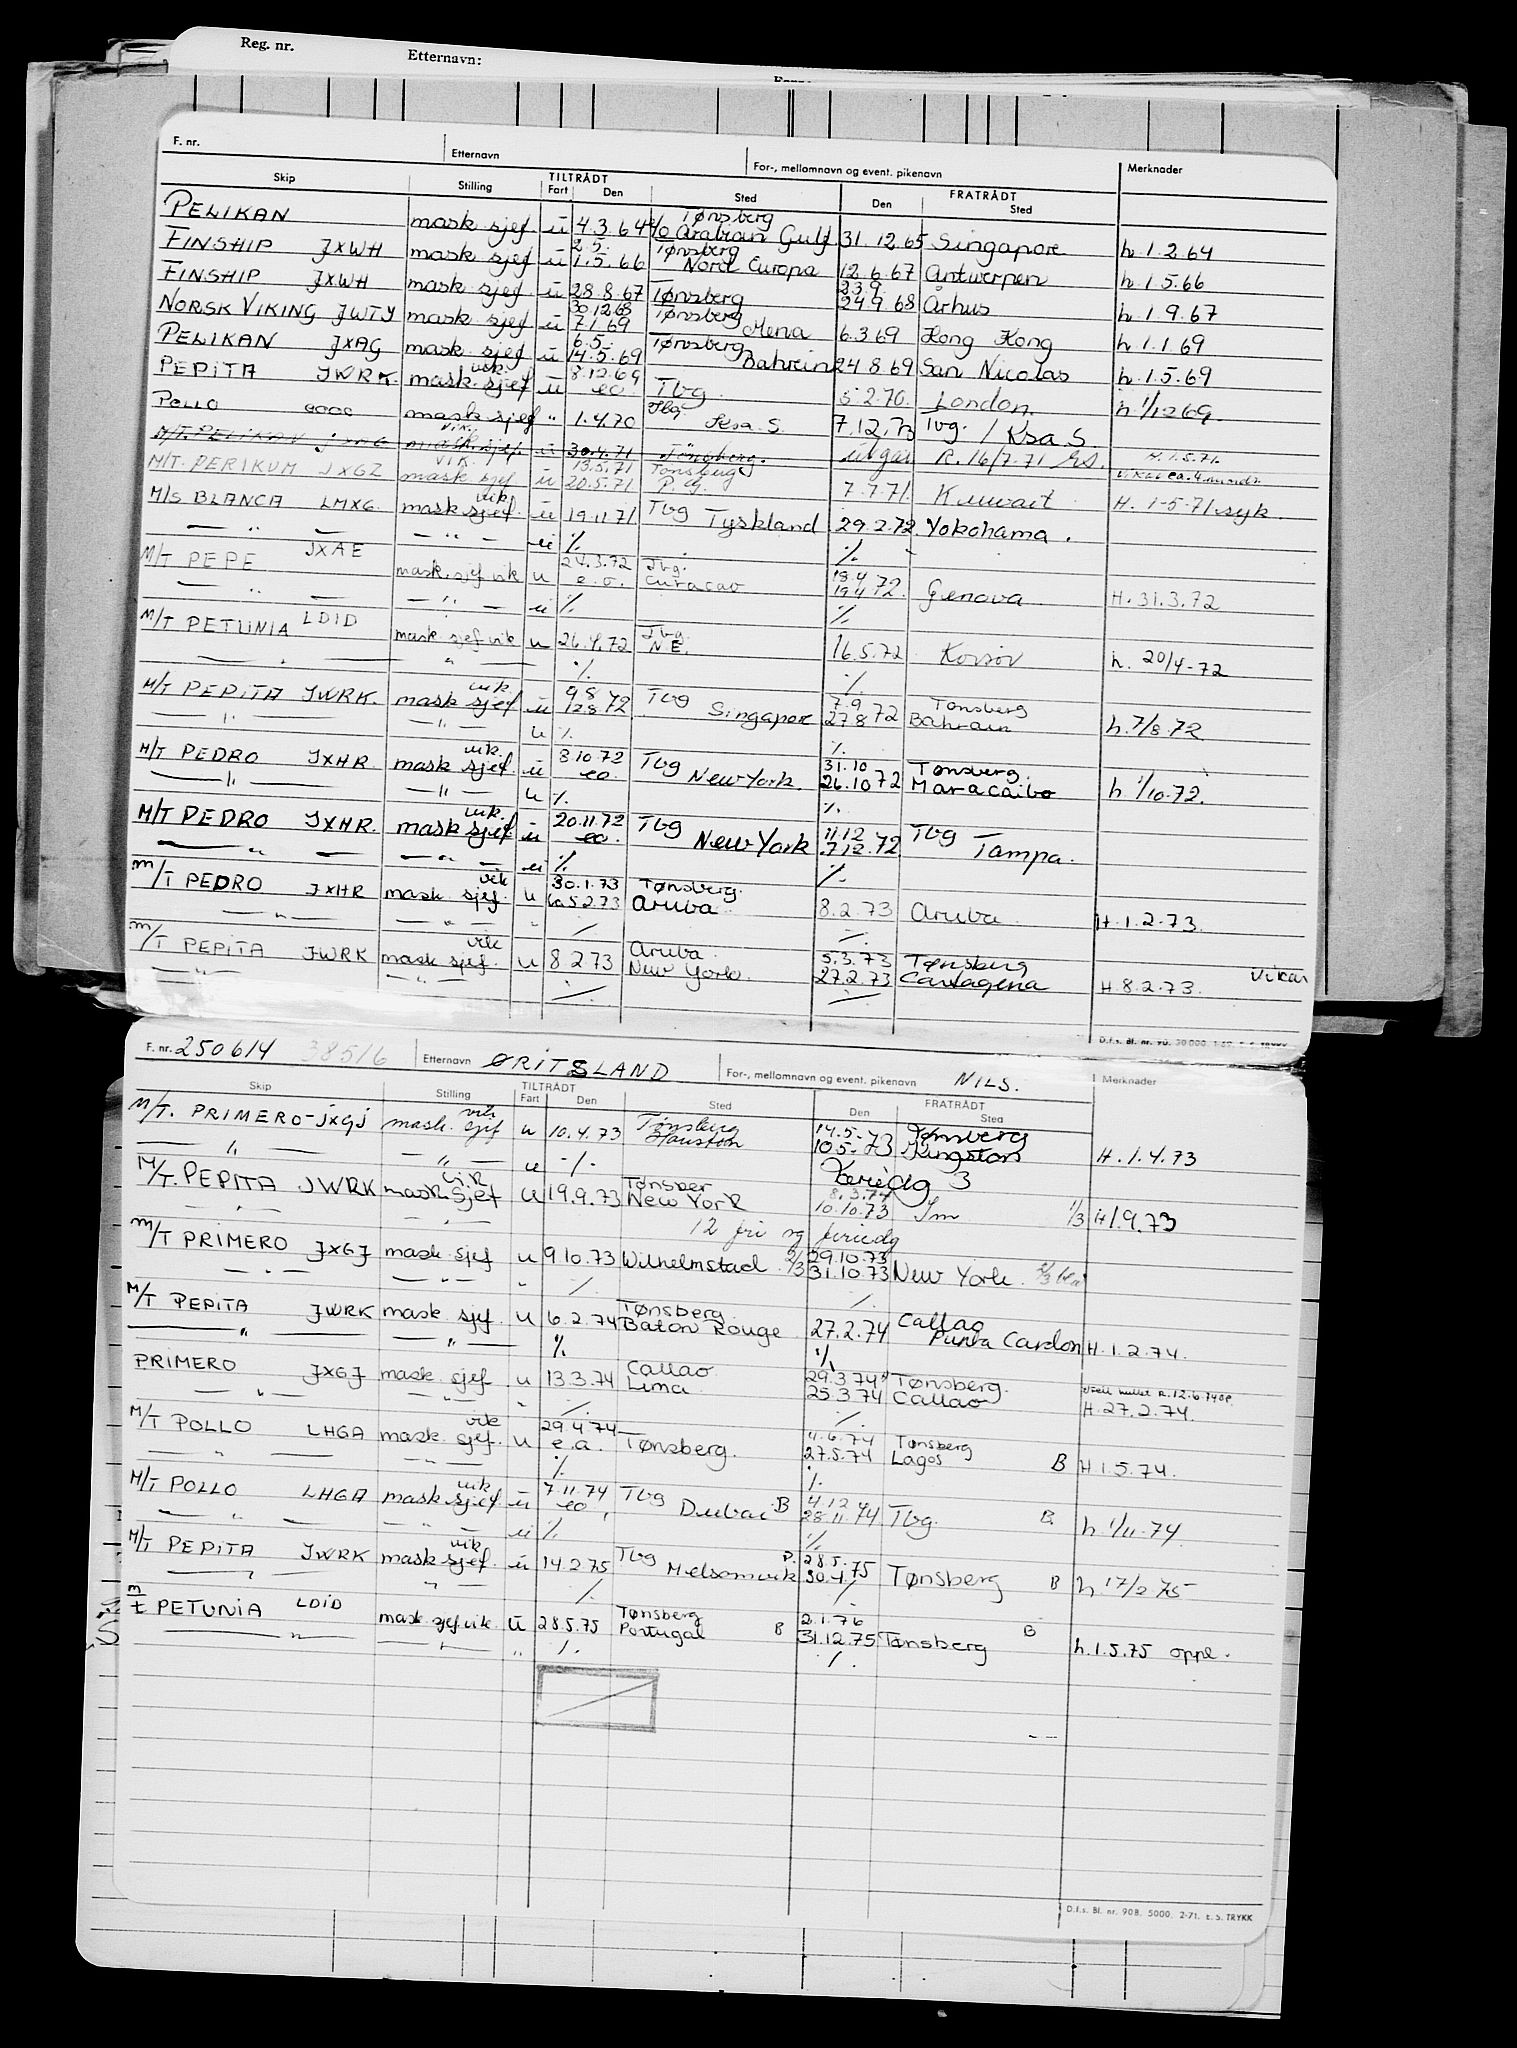 Reg. nr. Etternavn:
F. nr. Etternavn For-, mellomnavn og event. pikenavn Merknader
Skip Stilling TILTRÅDT Fart Den Sted FRATRÅDT Den Sted
PELIKAN mask sjef u 4.3.64 Tønsberg Arabian Gulf 31.12.65 Singapore h.1.2.64
FINSHIP JXWH mask sjef u 2.5. 1.5.66 Tønsberg Nord Europa 12.6.67 Antwerpen h.1.5.66
FINSHIP JXWH mask sjef u 28.8.67 Tønsberg 23.9. 24.9.68 Århus h.1.9.67
NORSK VIKING JWTY mask sjef u 30.12.68 7.1.69 Tønsberg Mena 6.3.69 Hong Kong h.1.1.69
PELIKAN JXAG mask sjef u 6.5. 14.5.69 Tønsberg Bahrein 24.8.69 San Nicolas h.1.5.69
PEPITA JWRK. mask sjef vik. u 8.12.69 eo Tbg. 5.2.70. London. h 1/12 69.
POLLO mask sjef " 1.4.70 Tbg. Ksa. S. 7.12.73 Tvg. / Ksa S.
M/T. PELIKAN JXAG mask. sjef. vik. u 30.4.71 Tönsberg. utgår R. 16/7-71 H.1.5.71.
M/T. PERIKUM JXGZ mask sjef VIK. u 13.5.71 20.5.71 Tønsberg P.G. 7.7.71. Kuwait H. 1-5-71. syk.
M/S BLANCA LMXG. mask sjef. vik u 19.11.71 Tbg Tyskland 29.2.72. Yokohama.
— " — — " — u % %
M/T PEPE JXAE mask. sjef vik u 24.3.72 e.o. Tbg. Curacao 18.4 19.4 72. Genova H. 31.3.72
— " — — " — u % %
M/T PETUNIA LDID mask. sjef vik u 26.4.72 Tbg. N.E. 16.5.72 Korsör h. 20/4-72
— " — — " — % %
M/T PEPITA JWRK. mask sjef vik. u 9.8 12.8 72 Tbg Singapore 7.9 27.8 72 Tønsberg Bahrain h.7/8.72
— " — — " — u % %
M/T PEDRO JXHR. mask sjef. vik. u 8.10.72 eo. Tbg New York. 31.10 26.10 72 Tønsberg. Maracaibo h 1/10.72.
— " — — " — u % %
M/T PEDRO JXHR. mask sjef vik. u 20.11.72 eo. Tbg New York 11.12 7.12.72 Tbg Tampa.
— " — — " — u % %
M/T PEDRO JXHR mask sjef. vik u 30.1.73 5.2.73 Tønsberg. Aruba 8.2.73 Aruba H.1.2.73
— " — — " — " % %
M/T PEPITA JWRK mask sjef. vik u 8.2.73 Aruba New York. 5.3.73 27.2.73 Tønsberg Cartagena H.8.2.73. Vikar
— " — — " — % %
D.f.s. Bl. nr. 90.
F. nr. 250614 38516 Etternavn ØRITSLAND For-, mellomnavn og event. pikenavn NILS. Merknader
Skip Stilling TILTRÅDT Fart Den Sted FRATRÅDT Den Sted
M/T. PRIMERO - JXGJ mask. sjef vik u 10.4.73 Tønsberg Houston 14.5.-73 10.5-73 Tønsberg Kingston H.1.4.73
— " — — " — u % Feriedg 3
M/T. PEPITA JWRK mask sjef vik u 19.9.73 Tønsber New York 8.3.74 10.10.73 1/3 H 1.9.73
— " — — " — 12 fri og feriedg
M/T PRIMERO JXGJ mask sjef u 9.10.73 Wilhelmstad 2/3 29.10.73 31.10.73 New York.
— " — — " — " % %
M/T PEPITA JWRK mask sjef. u 6.2.74 Tønsberg Baton Rouge 27.2.74 Callao Punta Cardon H.1.2.74.
— " — — " — % %
PRIMERO JXGJ mask sjef u 13.3.74 Callao Lima 29.3.74 25.3.74 Tønsberg. Callao H.27.2.74.
— " — — " — " % %
M/T POLLO LHGA mask. sjef. vik u 29.4.74 e.o. Tønsberg. 11.6.74 27.5.74 Tønsberg Lagos B H.1.5.74.
— " — — " — % %
M/T POLLO LHGA mask sjef vik u 7.11.74 eo Tbg Dubai B 4.12 28.11.74 Tbg. B. h 1/11.74.
— " — — " — u % %
M/T PEPITA JWRK mask sjef. vik u 14.2.75 Tbg Melsomvik P. 28.5. 30.4.75 Tønsberg B h 17/2 75
— " — — " — % %
M/T PETUNIA LDID mask. sjef. vik. u 28.5.75 Tønsberg Portugal B 2.1.76 31.12.75 Tønsberg B h.1.5.75 oppl.
— " — — " — " % %
D.f.s. Bl. nr. 90B. 5000. 2-71. E. S. TRYKK